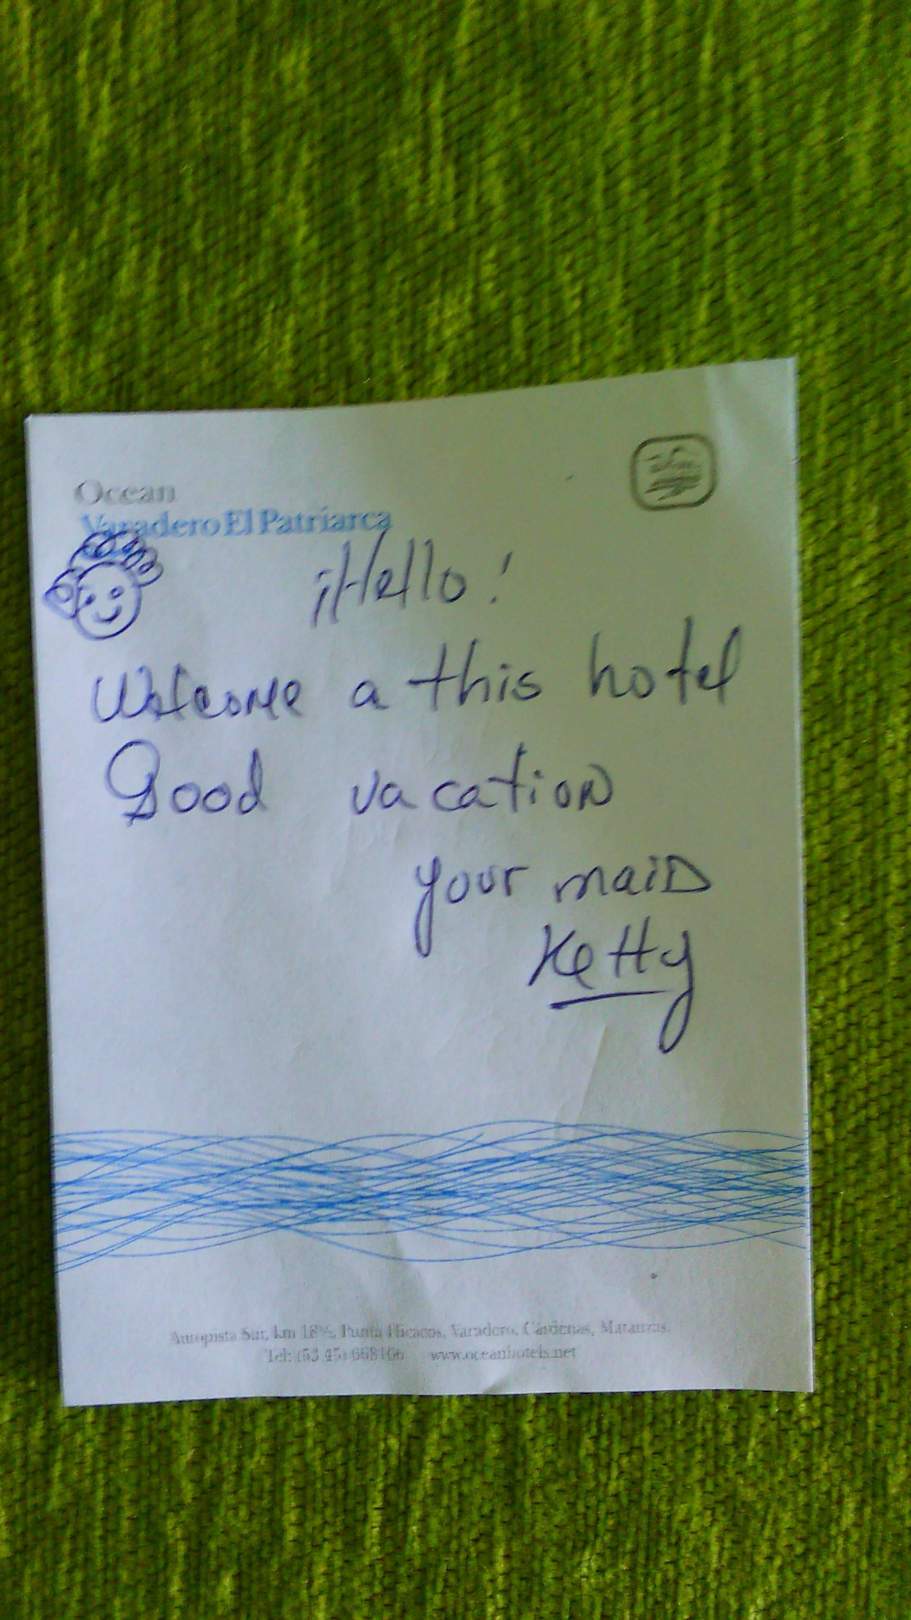 Ocean
Varadero El Patriarca
¡Hello!
Welcome a this hotel
Good vacation
your maid
Ketty
Autopista Sur, km 18½, Punta Hicacos, Varadero, Cárdenas, Matanzas.
Tel: (53 45) 668166 www.oceanhotels.net